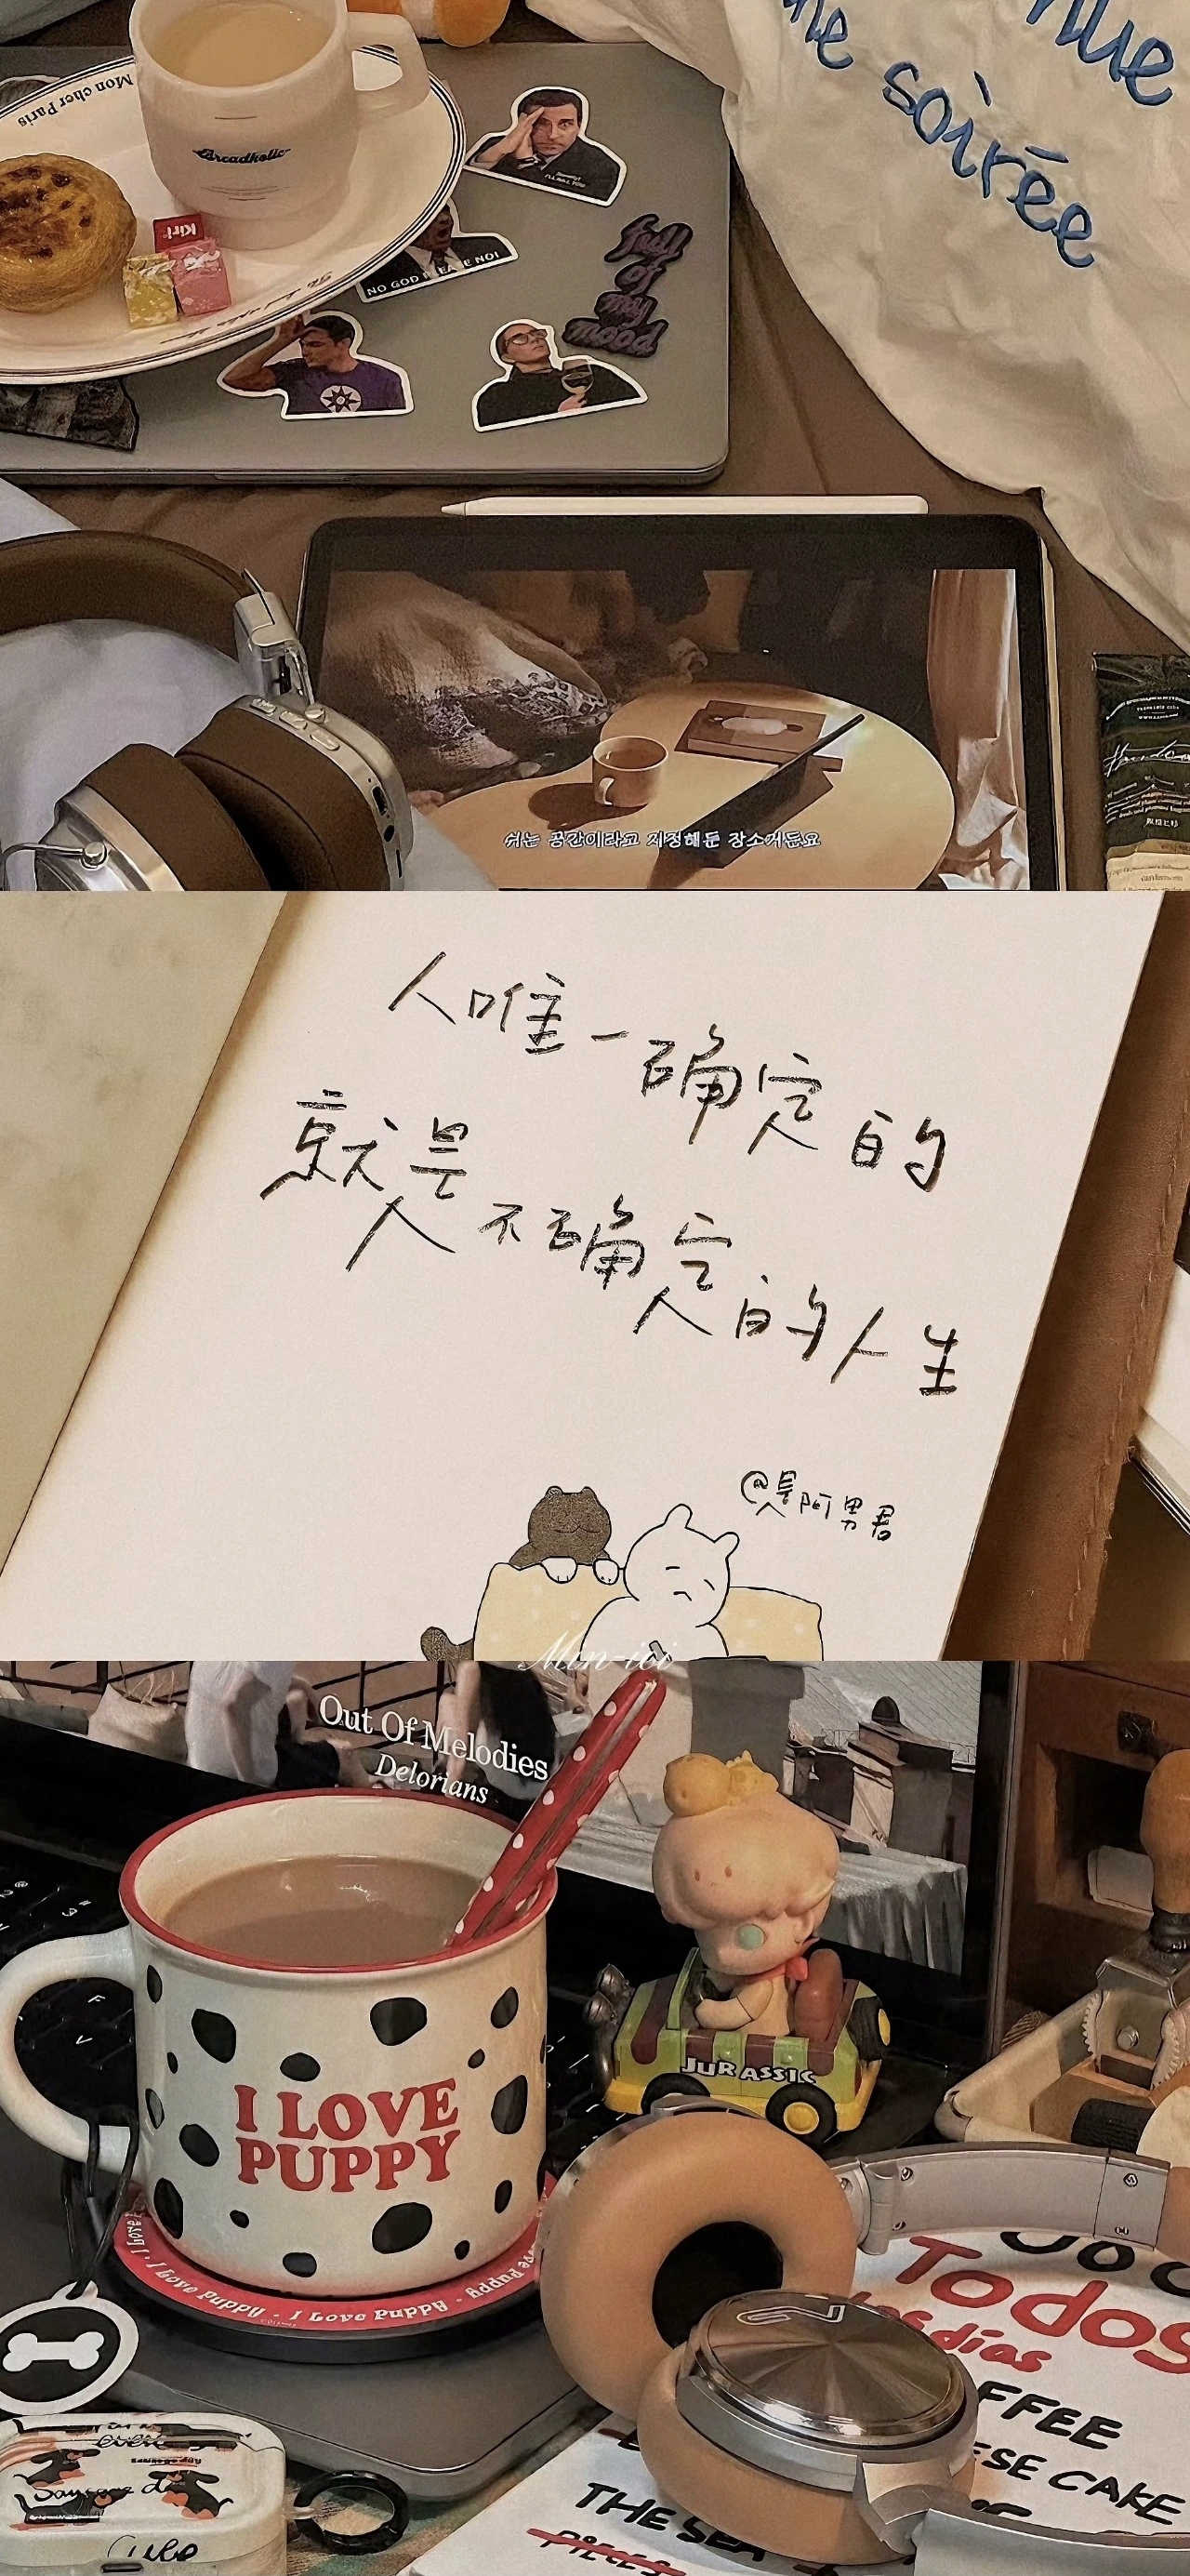 soirée
Mon cher Paris
Breadholic
Kiri
I'LL KILL YOU
NO GOD PLEASE NO!
full
of
my
mood
쉬는 공간이라고 지정해둔 장소거든요
人唯一确定的
就是不确定的人生
@是阿男君
Min-ioi
Out Of Melodies
Delorians
JURASSIC
I LOVE
PUPPY
I Love PUPPY · I Love PUPPY · PUPPY
Todos
los días
FFEE
ESE CAKE
THE SEA
PIECES